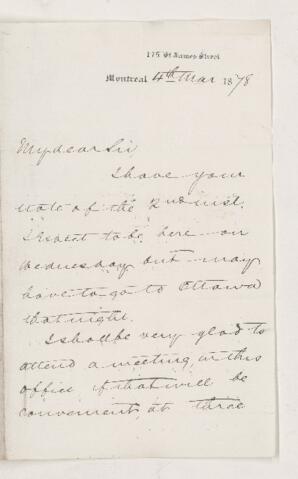 175 St James Street
Montreal 4th Mar 1878
My dear Sir,
I have your
note of the 2nd inst.
I expect to be here on
Wednesday but may
have to go to Ottawa
that night.
I shall be very glad to
attend a meeting in this
office if that will be
convenient, at three